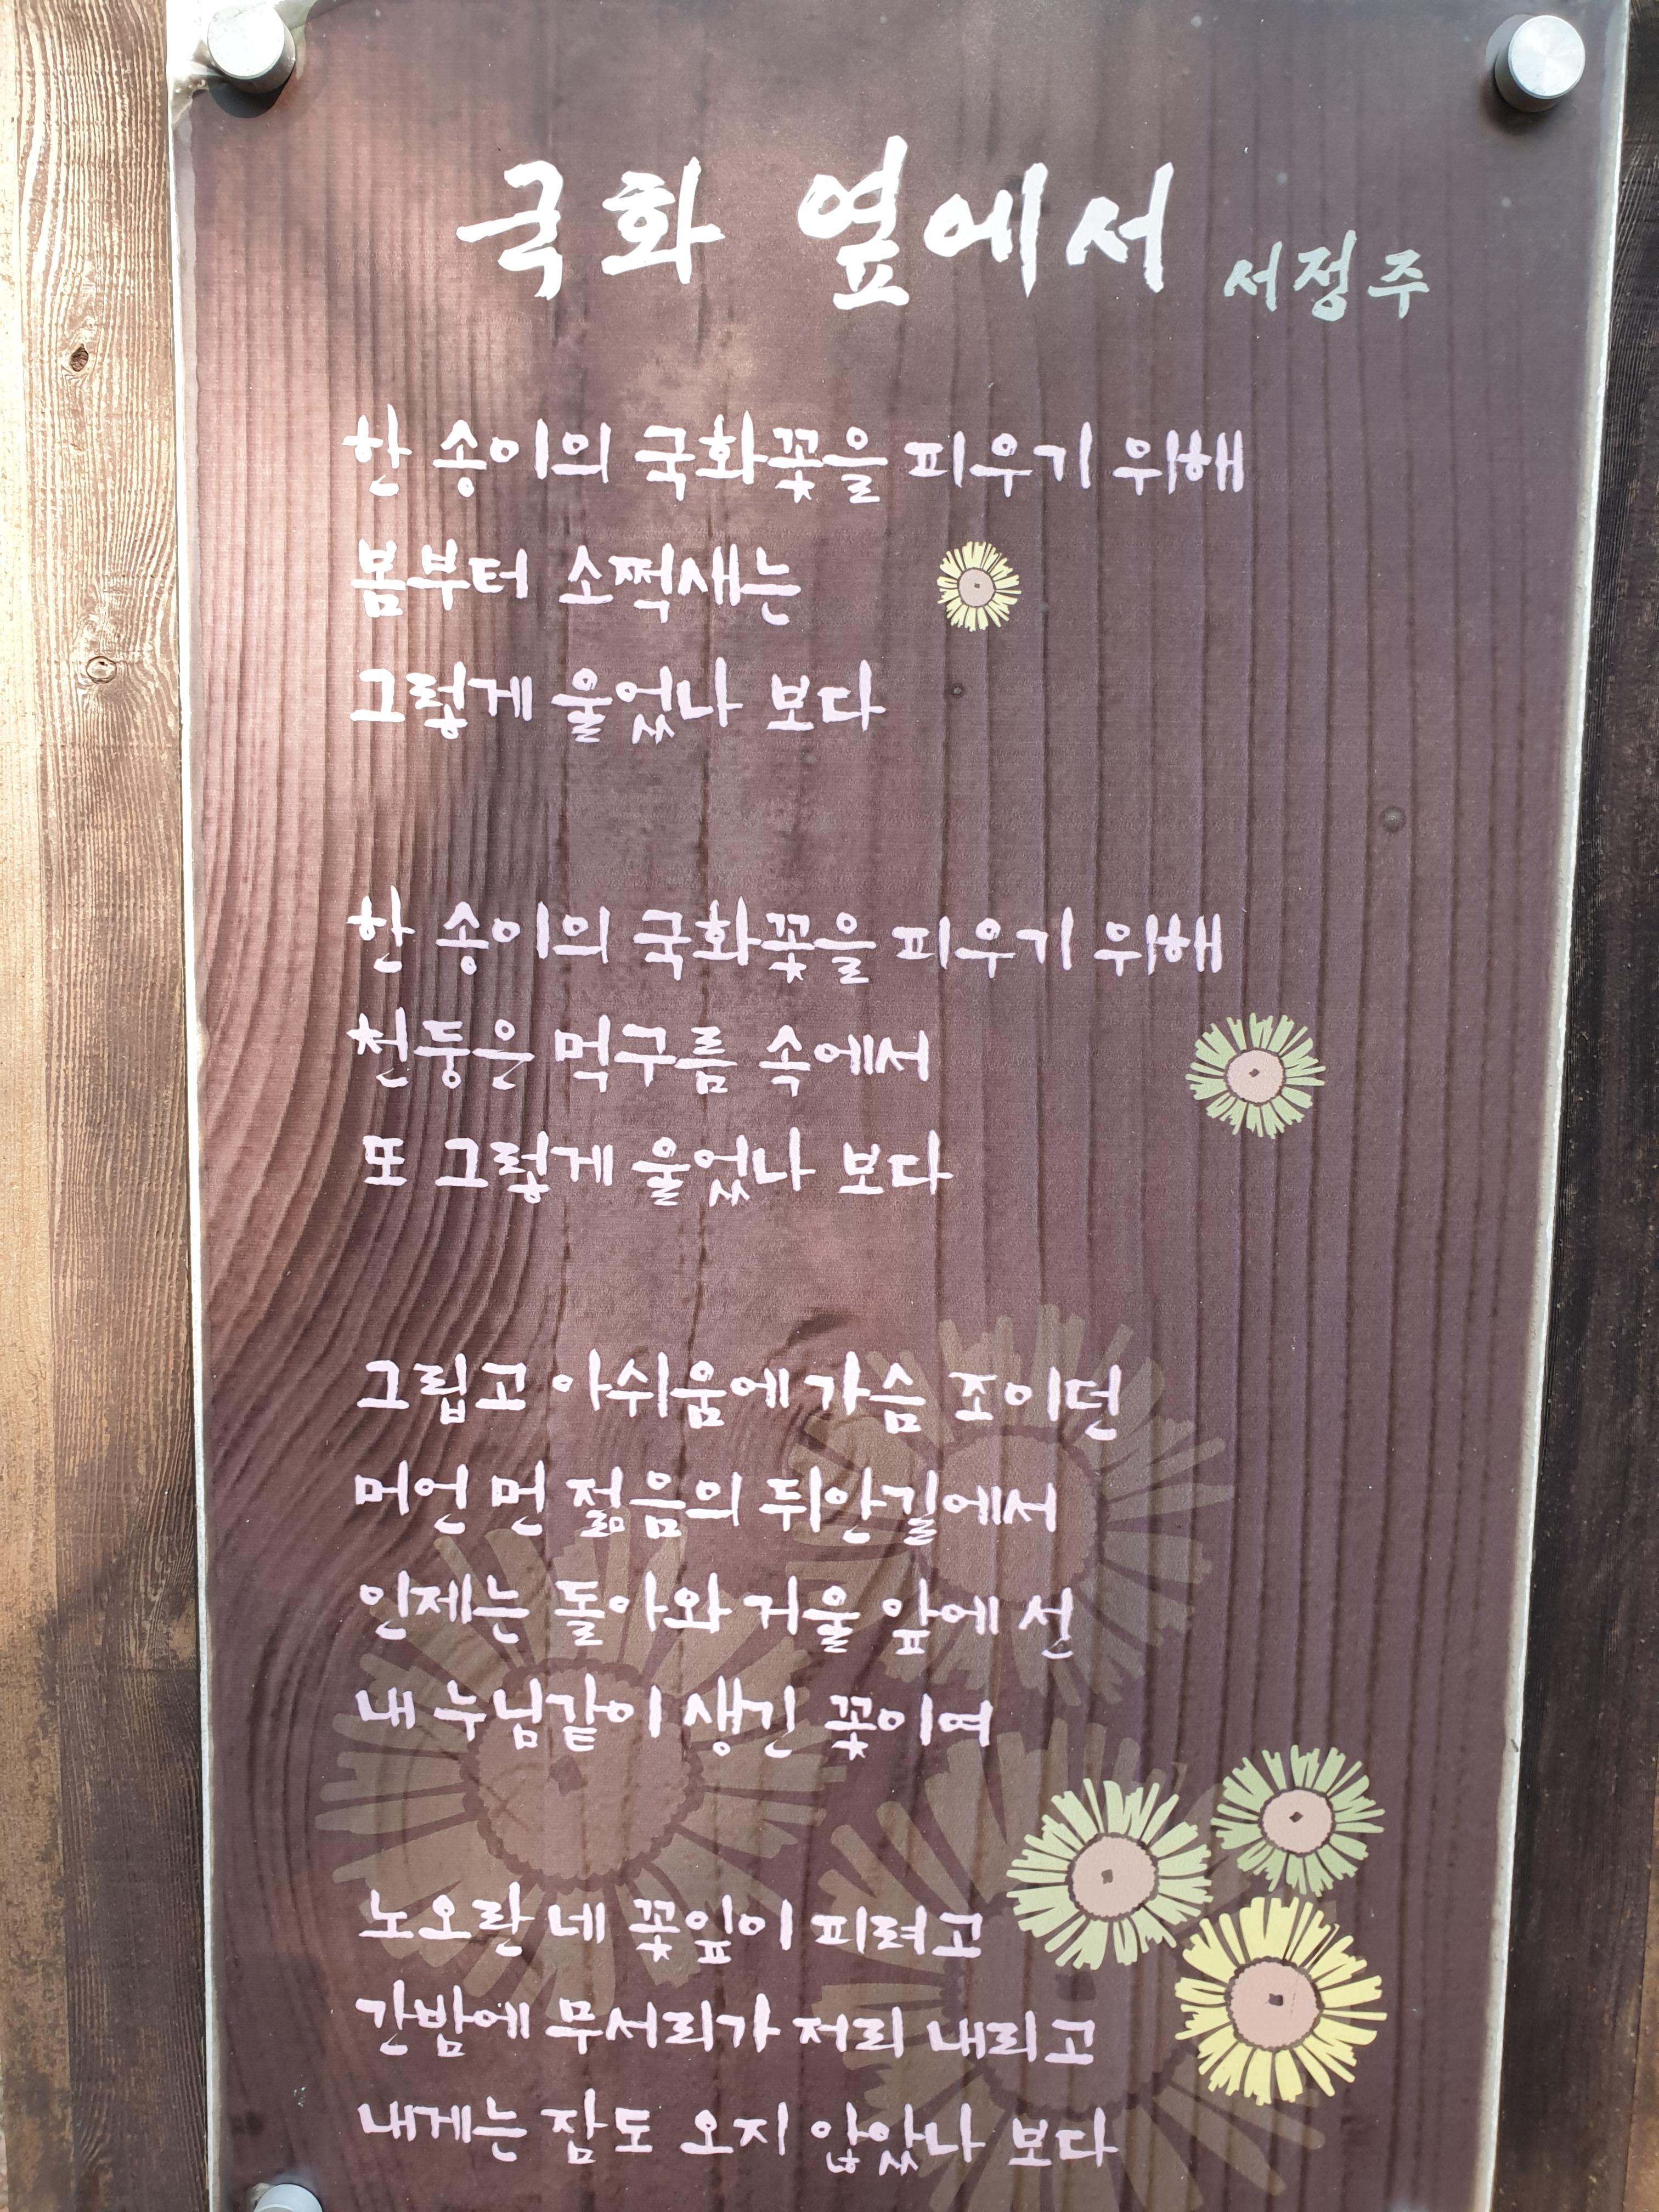 국화 옆에서 서정주
한 송이의 국화꽃을 피우기 위해
봄부터 소쩍새는
그렇게 울었나 보다
한 송이의 국화꽃을 피우기 위해
천둥은 먹구름 속에서
또 그렇게 울었나 보다
그립고 아쉬움에 가슴 조이던
머언 먼 젊음의 뒤안길에서
인제는 돌아와 거울 앞에 선
내 누님같이 생긴 꽃이여
노오란 네 꽃잎이 피려고
간밤에 무서리가 저리 내리고
내게는 잠도 오지 않았나 보다